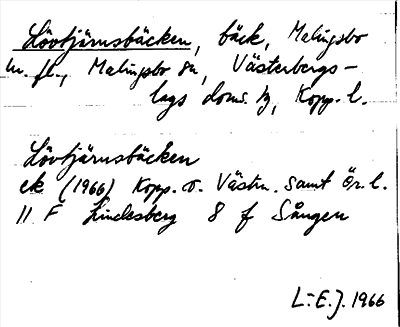 Lövtjärnsbäcken, bäck, Malingsbo
m. fl., Malingsbo sn, Västerbergs-
lags doms. hg, Kopp. l.
Lövtjärnsbäcken
ek (1966) Kopp. o. Västm. samt Ör. l.
11 F Lindesberg 8 f Sången
L-E. J. 1966